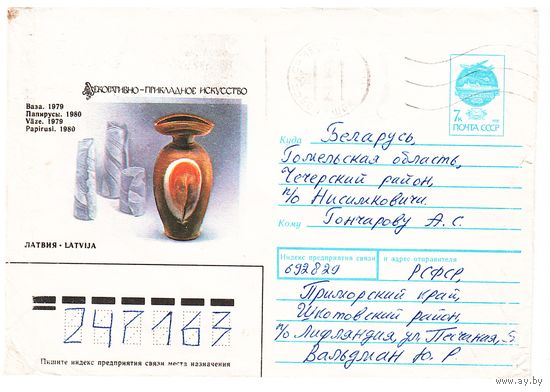 ДЕКОРАТИВНО-ПРИКЛАДНОЕ ИСКУССТВО
Ваза. 1979
Папирусы. 1980
Vāze. 1979
Papirusi. 1980
ЛАТВИЯ · LATVIJA
7к
ПОЧТА СССР
Куда Беларусь,
Гомельская область,
Чечерский район,
п/о Нисимковичи
Кому Гончарову А.С.
Индекс предприятия связи и адрес отправителя
692829 РСФСР,
Приморский край,
Шкотовский район,
п/о Лифляндия, ул Песчаная, 5
Вальдман Ю.Р
247163
Пишите индекс предприятия связи места назначения
www.ay.by